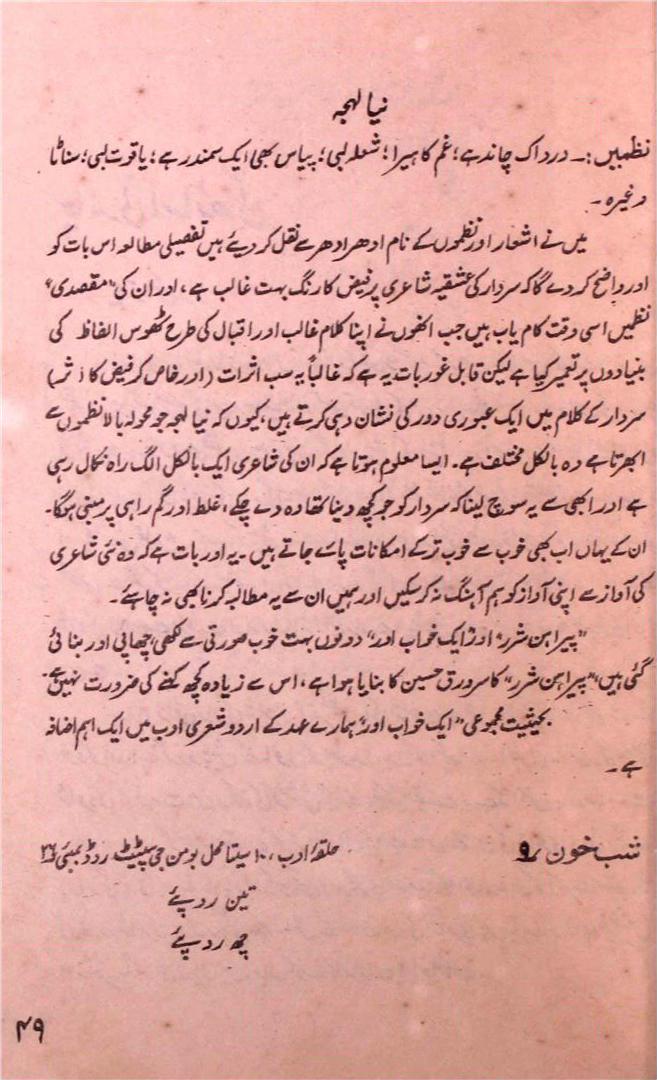 نیا لہجہ
نظمیں :۔ درد اک چاند ہے؛ غم کا ہیرا؛ شعلہ لبی؛ پیاس بھی ایک سمندر ہے؛ یاقوت لبی؛ سناٹا
وغیرہ۔
میں نے اشعار اور نظموں کے نام ادھر ادھر سے نقل کر دیئے ہیں تفصیلی مطالعہ اس بات کو
اور واضح کر دے گا کہ سردار کی عشقیہ شاعری پر فیض کا رنگ بہت غالب ہے، اور ان کی "مقصدی"
نظمیں اسی وقت کام یاب ہیں جب انھوں نے اپنا کلام غالب اور اقبال کی طرح ٹھوس الفاظ کی
بنیادوں پر تعمیر کیا ہے لیکن قابل غور بات یہ ہے کہ غالباً یہ سب اثرات (اور خاص کر فیض کا اثر)
سردار کے کلام میں ایک عبوری دور کی نشان دہی کرتے ہیں، کیوں کہ نیا لہجہ جو محولہ بالا نظموں سے
ابھرتا ہے وہ بالکل مختلف ہے۔ ایسا معلوم ہوتا ہے کہ ان کی شاعری ایک بالکل الگ راہ نکال رہی
ہے اور ابھی سے یہ سوچ لینا کہ سردار کو جو کچھ دینا تھا وہ دے چکے، غلط اور گم راہی پر مبنی ہوگا۔
ان کے یہاں اب بھی خوب سے خوب تر کے امکانات پائے جاتے ہیں۔ یہ اور بات ہے کہ وہ نئی شاعری
کی آواز سے اپنی آواز کو ہم آہنگ نہ کر سکیں اور ہمیں ان سے یہ مطالبہ کرنا بھی نہ چاہئے۔
"پیراہن شرر" اور "ایک خواب اور" دونوں بہت خوب صورتی سے لکھی، چھاپی اور بنائی
گئی ہیں، "پیراہن شرر" کا سرورق حسین کا بنایا ہوا ہے، اس سے زیادہ کچھ کہنے کی ضرورت نہیں ہے۔
بحیثیت مجموعی "ایک خواب اور" ہمارے عہد کے اردو شعری ادب میں ایک اہم اضافہ
ہے۔
شب خون ۹؍ حلقۂ ادب، ۱۰ سیتا محل بومن جی پیٹیٹ روڈ بمبئی ۲۶
تین روپئے
چھ روپئے
۴۹